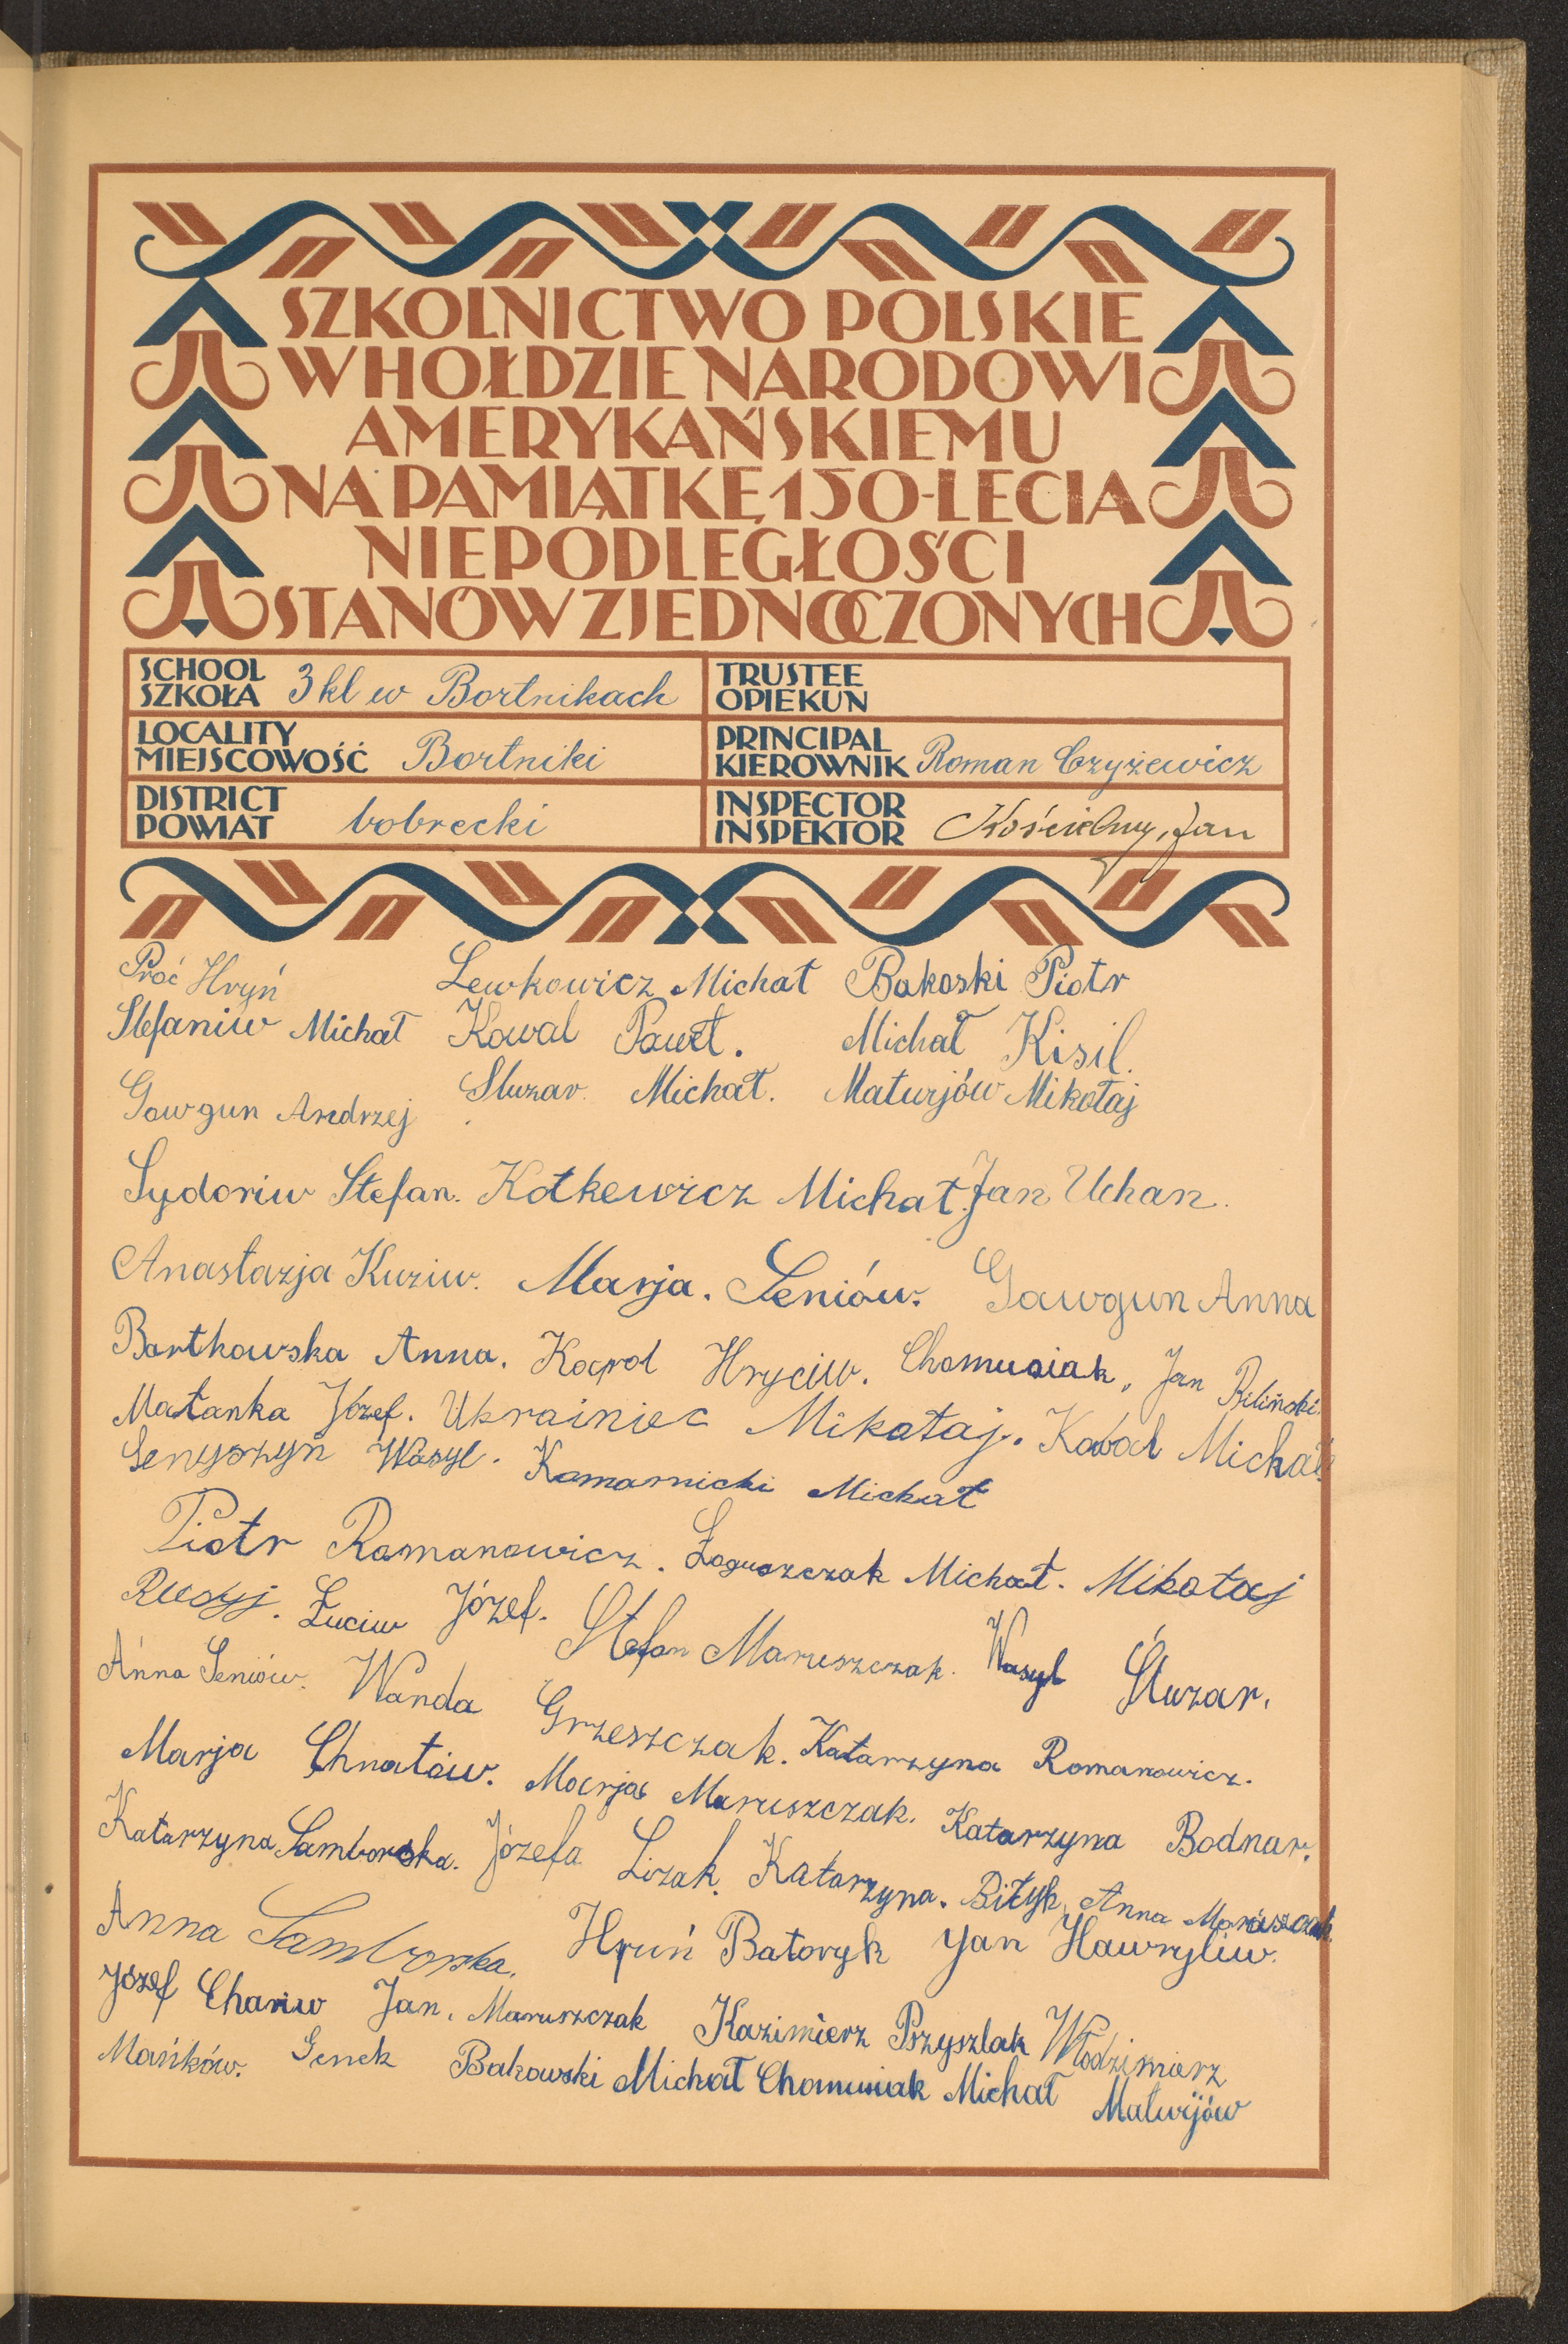 SZKOLNICTWO POLSKIE
W HOŁDZIE NARODOWI
AMERYKAŃSKIEMU
NA PAMIĄTKĘ 150-LECIA
NIEPODLEGŁOŚCI
STANÓW ZJEDNOCZONYCH
SCHOOL
SZKOŁA 3 kl w Bortnikach
TRUSTEE
OPIEKUN
LOCALITY
MIEJSCOWOŚĆ Bortniki
PRINCIPAL
KIEROWNIK Roman Czyżewicz
DISTRICT
POWIAT bobrecki
INSPECTOR
INSPEKTOR Kościelny, Jan
Proć Hryń Lewkowicz Michał Bakoski Piotr
Stefaniw Michał Kowal Paweł. Michał Kisil.
Gawgun Andrzej Sluzar Michał. Maturjów Mikołaj
Sydoriw Stefan. Kotkewicz Michał. Jan Uchan.
Anastazja Kuziw. Marja. Seniów. Gawgun Anna
Bartkowska Anna. Karol Hryciw. Chomusiak, Jan Biliński.
Matanka Józef. Ukrainiec Mikołaj. Kowal Michał
Senyszyn Wasyl. Komarnicki Michał
Piotr Romanowicz. Łaguszczak Michał. Mikołaj
Rusyj. Łuciw Józef. Stefan Maruszczak. Wasyl Śluzar.
Anna Seniów. Wanda Grzeszczak. Katarzyna Romanowicz.
Marja Chnatów. Marja Maruszczak. Katarzyna Bodnar.
Katarzyna Samborska. Józefa Lizak. Katarzyna. Bityk, Anna Maruszczak.
Anna Samborska. Hryń Batoryk Jan Hawryliw.
Józef Chariw Jan. Maruszczak Kazimierz Przyszlak Włodzimierz
Mańków. Genek Bakowski Michał Chomusiak Michał Matwijów